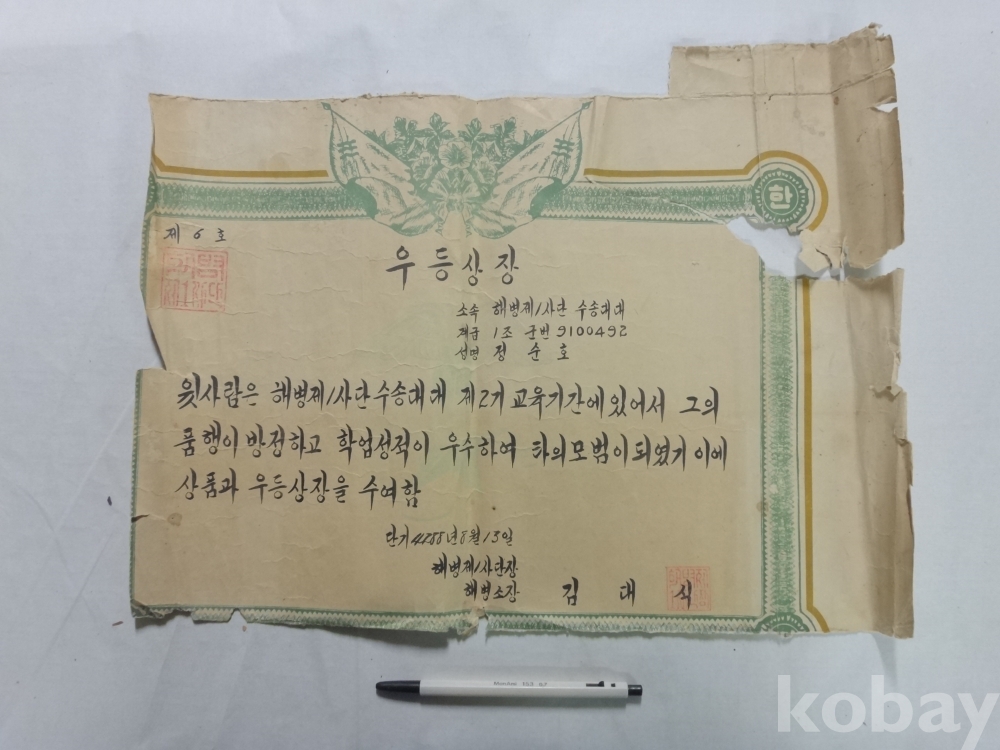 한
제 6 호
우등상장
소속 해병제1사단 수송대대
계급 1조 군번 9100492
성명 정 순 호
윗사람은 해병제1사단수송대대 제2기 교육기간에있어서 그의
품행이 방정하고 학업성적이 우수하여 타의모범이되였기 이에
상품과 우등상장을 수여함
단기4288년8월13일
해병제1사단장
해병소장 김 대 식
kobay